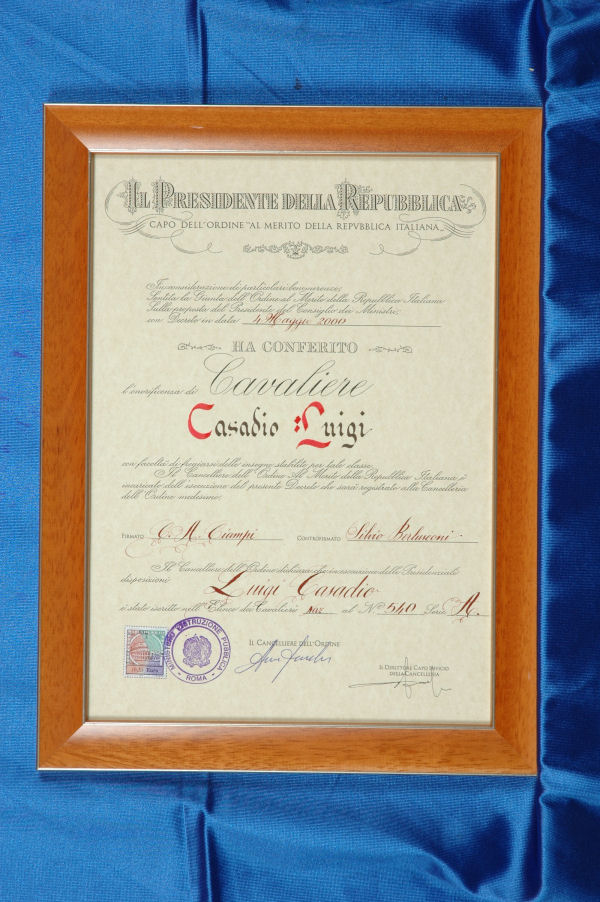 IL PRESIDENTE DELLA REPUBBLICA
CAPO DELL'ORDINE "AL MERITO DELLA REPVBBLICA ITALIANA"
In considerazione di particolari benemerenze;
Sentita la Giunta dell'Ordine al Merito della Repubblica Italiana
Sulla proposta del Presidente del Consiglio dei Ministri;
con Decreto in data 4 Maggio 2000
HA CONFERITO
l'onorificenza di Cavaliere
Casadio Luigi
con facoltà di fregiarsi delle insegne stabilite per tale classe.
Il Cancelliere dell'Ordine Al Merito della Repubblica Italiana è
incaricato dell'esecuzione del presente Decreto che sarà registrato alla Cancelleria
dell'Ordine medesimo.
FIRMATO C. A. Ciampi CONTROFIRMATO Silvio Berlusconi
Il Cancelliere dell'Ordine dichiara che in esecuzione delle Presidenziali
disposizioni Luigi Casadio
è stato iscritto nell'Elenco dei Cavalieri al N° 540 Serie A.
MINISTERO ISTRUZIONE PUBBLICA
- ROMA -
Euro
IL CANCELLIERE DELL'ORDINE
IL DIRETTORE CAPO UFFICIO
DELLA CANCELLERIA